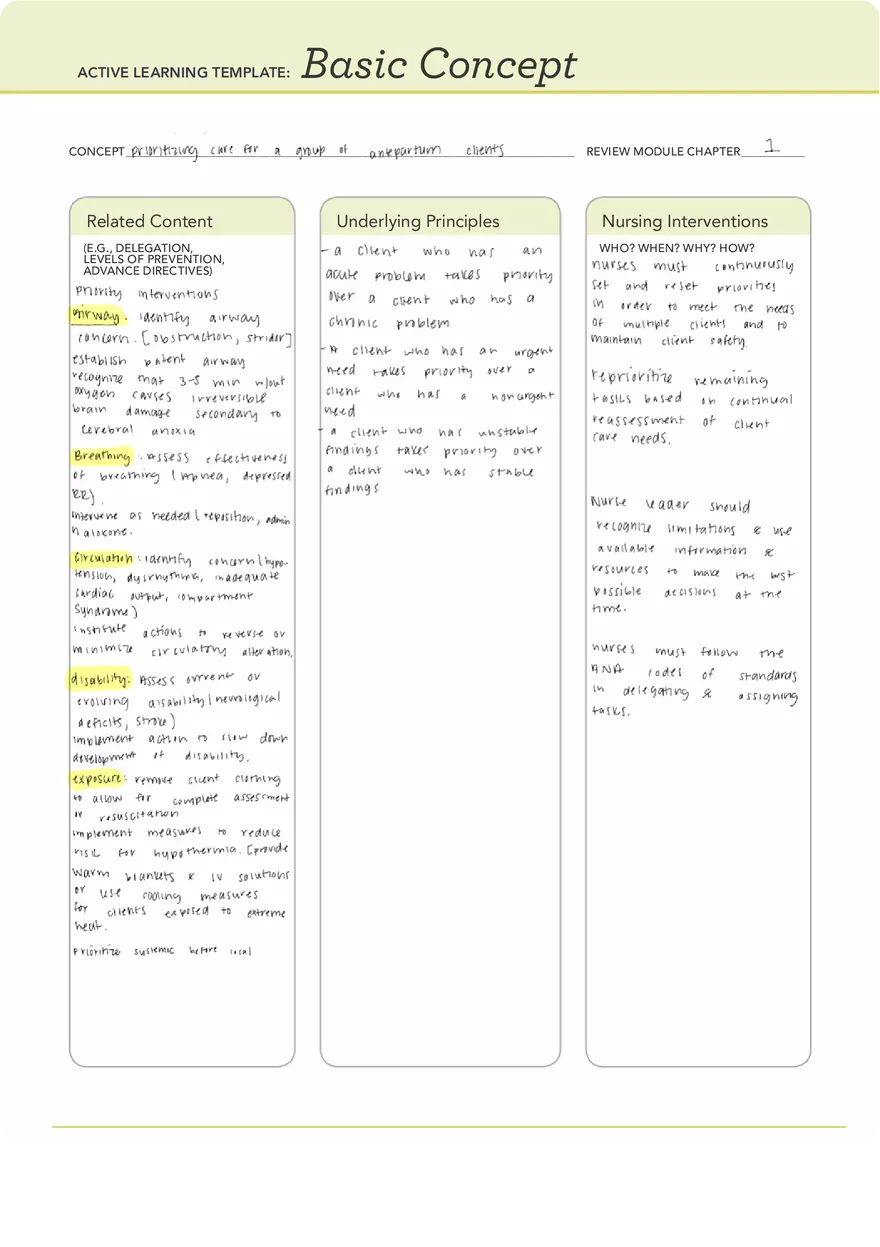 ACTIVE LEARNING TEMPLATE: Basic Concept
CONCEPT prioritizing care for a group of antepartum clients
REVIEW MODULE CHAPTER 1
Related Content
(E.G., DELEGATION,
LEVELS OF PREVENTION,
ADVANCE DIRECTIVES)
Priority interventions
Airway. identify airway
concern. [obstruction, stridor]
establish patent airway
recognize that 3-5 min w/out
oxygen causes irreversible
brain damage secondary to
cerebral anoxia
Breathing: Assess effectiveness
of breathing (Apnea, depressed
RR).
intervene as needed (reposition, admin
naloxone.
Circulation: identify concern (hypo-
tension, dysrhythmia, inadequate
cardiac output, compartment
syndrome)
institute actions to reverse or
minimize circulatory alteration.
disability: Assess current or
evolving disability (neurological
deficits, stroke)
implement action to slow down
development of disability.
exposure: remove client clothing
to allow for complete assessment
or resuscitation
implement measures to reduce
risk for hypothermia. [provide
warm blankets & IV solutions
or use cooling measures
for clients exposed to extreme
heat.
Prioritize systemic before local
Underlying Principles
- a client who has an
acute problem takes priority
over a client who has a
chronic problem
- A client who has an urgent
need takes priority over a
client who has a nonurgent
need
- a client who has unstable
findings takes priority over
a client who has stable
findings
Nursing Interventions
WHO? WHEN? WHY? HOW?
nurses must continuously
set and reset priorities
in order to meet the needs
of multiple clients and to
maintain client safety.
reprioritize remaining
tasks based on continual
reassessment of client
care needs.
Nurse leader should
recognize limitations & use
available information &
resources to make the best
possible decisions at the
time.
nurses must follow the
ANA codes of standards
in delegating & assigning
tasks.